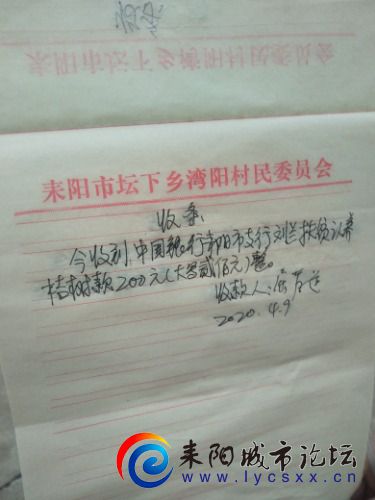 收条
耒阳市坛下乡湾阳村民委员会
收条
今收到中国银行耒阳市支行刘兰扶贫认养
桔树款200元(大写贰佰元)整。
收款人:
2020.4.9
耒阳城市论坛
www.lycsxx.cn